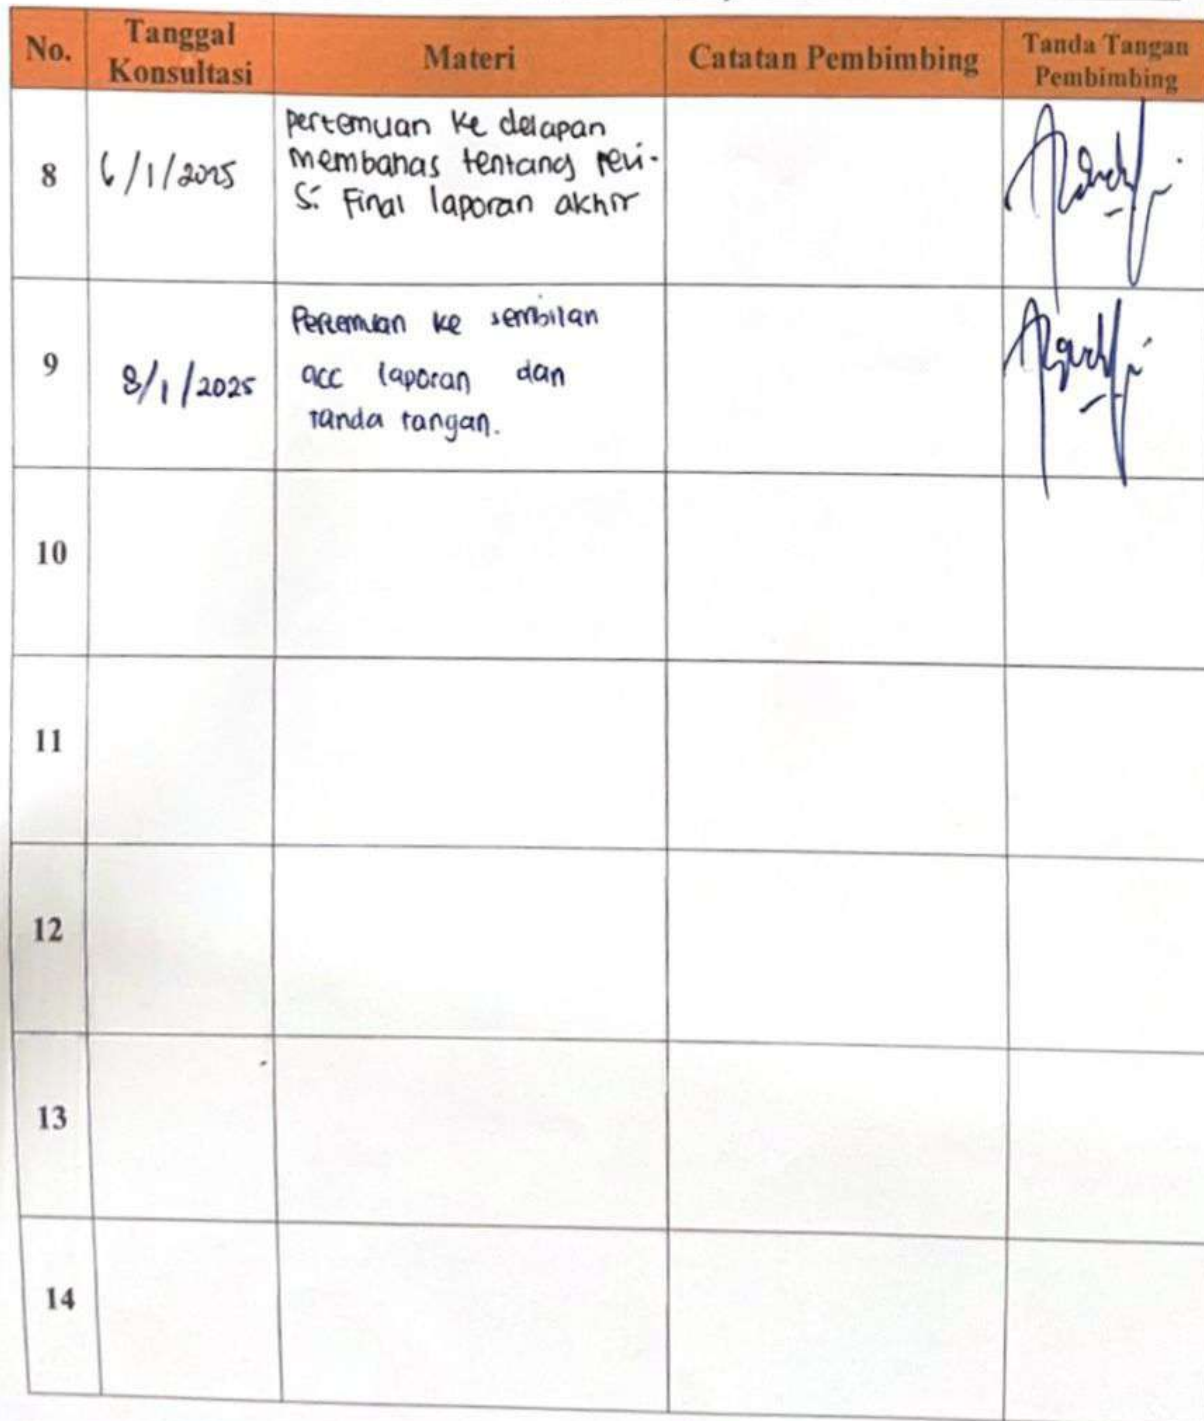 No.
Tanggal
Konsultasi
Materi
Catatan Pembimbing
Tanda Tangan
Pembimbing
8
6/1/2025
pertemuan ke delapan
membahas tentang revi-
si Final laporan akhir
9
8/1/2025
Pertemuan ke sembilan
acc laporan dan
tanda tangan.
10
11
12
13
14